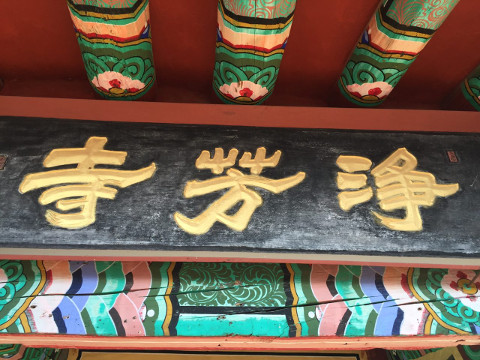 淨芳寺